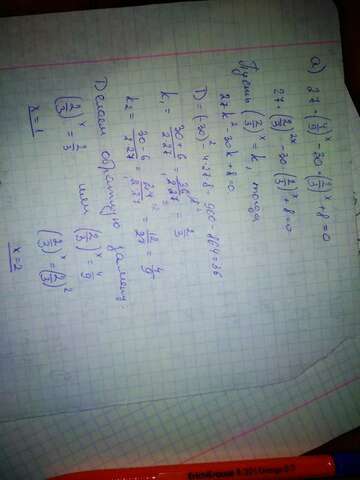 а) 27·(4/9)^x - 30·(2/3)^x + 8 = 0
27·(2/3)^2x - 30·(2/3)^x + 8 = 0
Пусть (2/3)^x = k, тогда
27k² - 30k + 8 = 0
D = (-30)² - 4·27·8 = 900 - 864 = 36
k₁ = 30+6/2·27 = 36/2·27 = 2/3
k₂ = 30-6/2·27 = 24/2·27 = 12/27 = 4/9
Делаем обратную замену:
(2/3)^x = 2/3 или (2/3)^x = 4/9
x = 1 (2/3)^x = (2/3)²
x = 2
ErichKrause